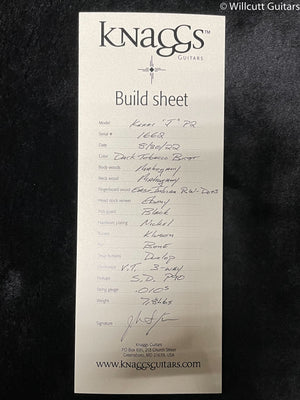 © Willcutt Guitars
KNAGGS™
GUITARS
Build sheet
Model Kenai "J" P2
Serial # 1662
Date 8/30/22
Color Dark Tobacco Burst
Body woods Mahogany
Neck wood Mahogany
Fingerboard wood East Indian R.W. - Dots
Head stock veneer Ebony
Pick guard Black
Hardware plating Nickel
Tuners Kluson
Nut Bone
Strap buttons Dunlop
V.T. 3-way
Pickups S.D. P90
Strings .010s
Weight 7.8 Lbs
Signature
Knaggs Guitars
PO Box 635, 213 Church Street
Greensboro, MD 21639, USA
www.knaggsguitars.com